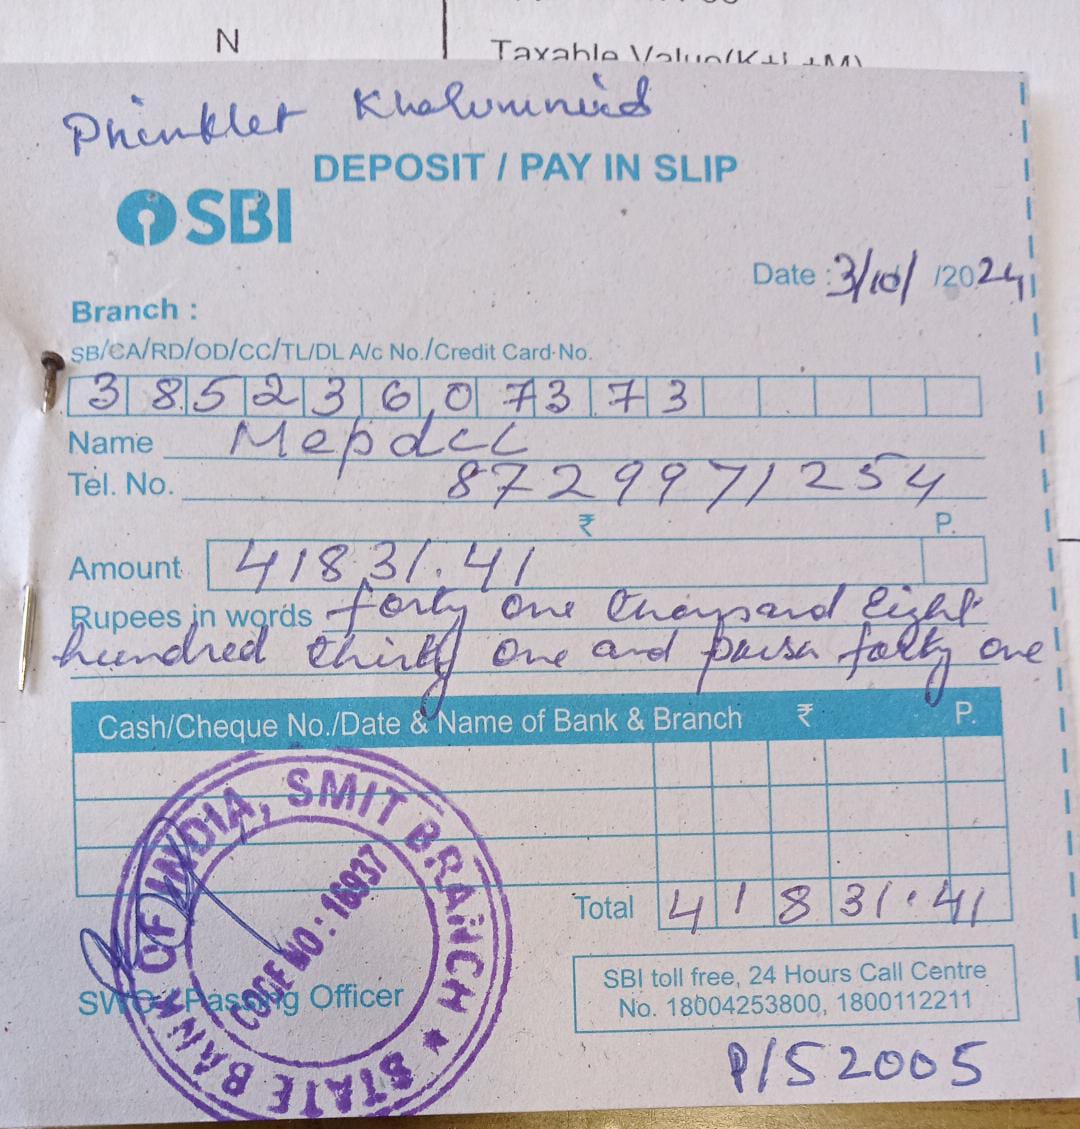 N
Taxable Value(K+L+M)
Phinklet
DEPOSIT / PAY IN SLIP
SBI
Date : 3/10/ /2024
Branch :
SB/CA/RD/OD/CC/TL/DL A/c No./Credit Card No.
3 8 5 2 3 6 0 7 3 7 3
Name Mepdcl
Tel. No. 8729971254
₹ P.
Amount 41831.41
Rupees in words forty one thousand Eight
hundred thirty one and paisa forty one
Cash/Cheque No./Date & Name of Bank & Branch ₹ P.
Total 4 1 8 31.41
STATE BANK OF INDIA, SMIT BRANCH ★
CODE NO : 16937
SWO / Passing Officer
SBI toll free, 24 Hours Call Centre
No. 18004253800, 1800112211
P/S 2005